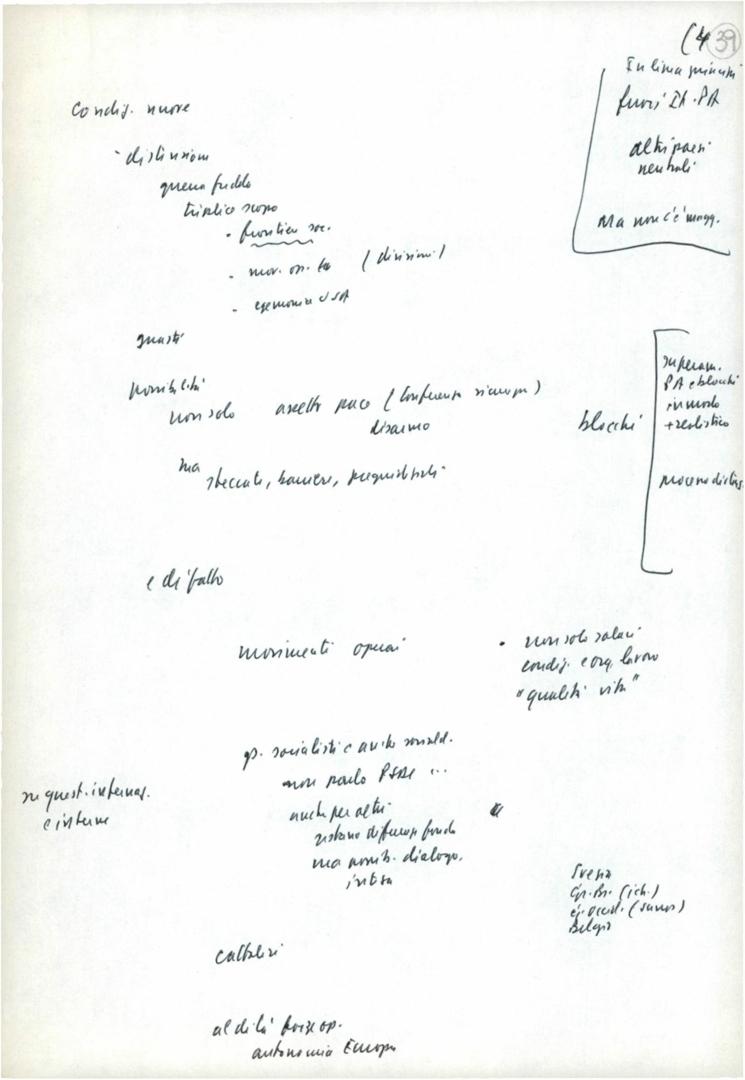 (4 39
In linea
fuori It. PA
altri paesi
neutrali
ma non c'è magg.
condiz. nuove
- distensione
guerra fredda
triplice scopo
- frontiere soc.
- mov. op. (divisioni)
- egemonia USA
guasti
possibilità
non solo assetto pace (Conferenza sicurezza)
disarmo
ma steccati, barriere, pregiudiziali
blocchi
superam.
PA e blocchi
in modo
+ realistico
processo distens.
e di fatto
movimenti operai
- non solo salari
condiz. e org. lavoro
"qualità vita"
p. socialisti e anche sociald.
non parlo PSDI ...
anche per altri
restano differenze fondo
ma possib. dialogo,
intesa
su quest. internaz.
e interne
Svezia
Gr. Br. (ich.)
g. occid. (Jusos)
Belgio
cattolici
al di là forze op.
autonomia Europa